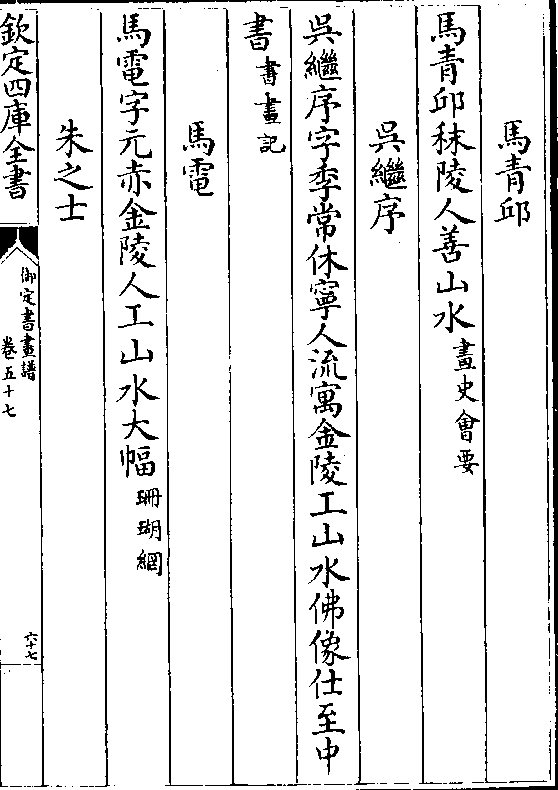 馬青邱
馬青邱秣陵人善山水畫史會要
吳繼序
吳繼序字季常休寧人流寓金陵工山水佛像仕至中
書書畫記
馬電
馬電字元赤金陵人工山水大幅珊瑚網
朱之士
欽定四庫全書
御定書畫譜
卷五十七
六十七